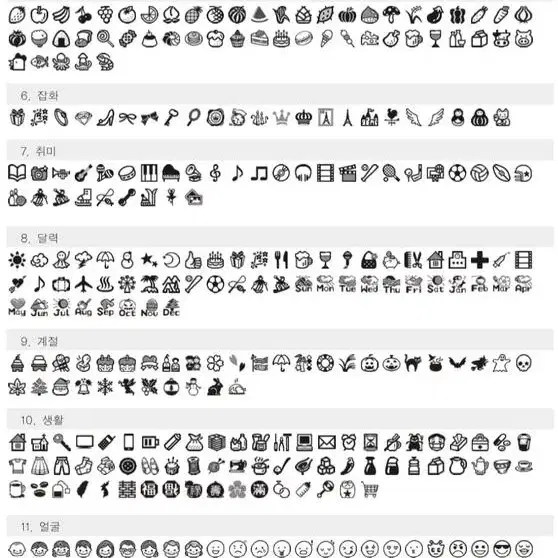 6. 잡화
7. 취미
8. 달력
Sun Mon Tue Wed Thu Fri Sat Jan Feb Mar Apr
May Jun Jul Aug Sep Oct Nov Dec
9. 계절
10. 생활
11. 얼굴